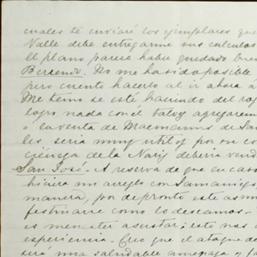 cuales te enviaré los ejemplares que
Valle debe entregarme sus calculos
El plano parece habe quedado bue
Berrendo. No me ha sido posible
pero cuento hacerlo al ir ahora á
Me temo se esté haciendo del
logro nada con el
o la venta de de
les seria muy util y por
ciénega de la Nariz deberia vend
San José. A reserva de que en caso
hiciera un arreglo con Samaniego
manera, por de pronto este asun
festinarse como lo deseamos.
es menester asustar; este nos
esperiencia. Creo que el ataque de
será una saludable amenaza y